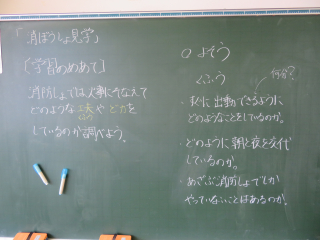 「消ぼうしょ見学」
[学習のめあて]
消防しょでは火事にそなえて
どのような工夫やどりょくを
しているのか調べよう。
○よそう
くふう
何分?
・すぐに出動できるように
どのようなことをしているのか。
・どのように朝と夜を交代
しているのか。
・めざぶ消防しょでしか
やっていないことはあるのか。